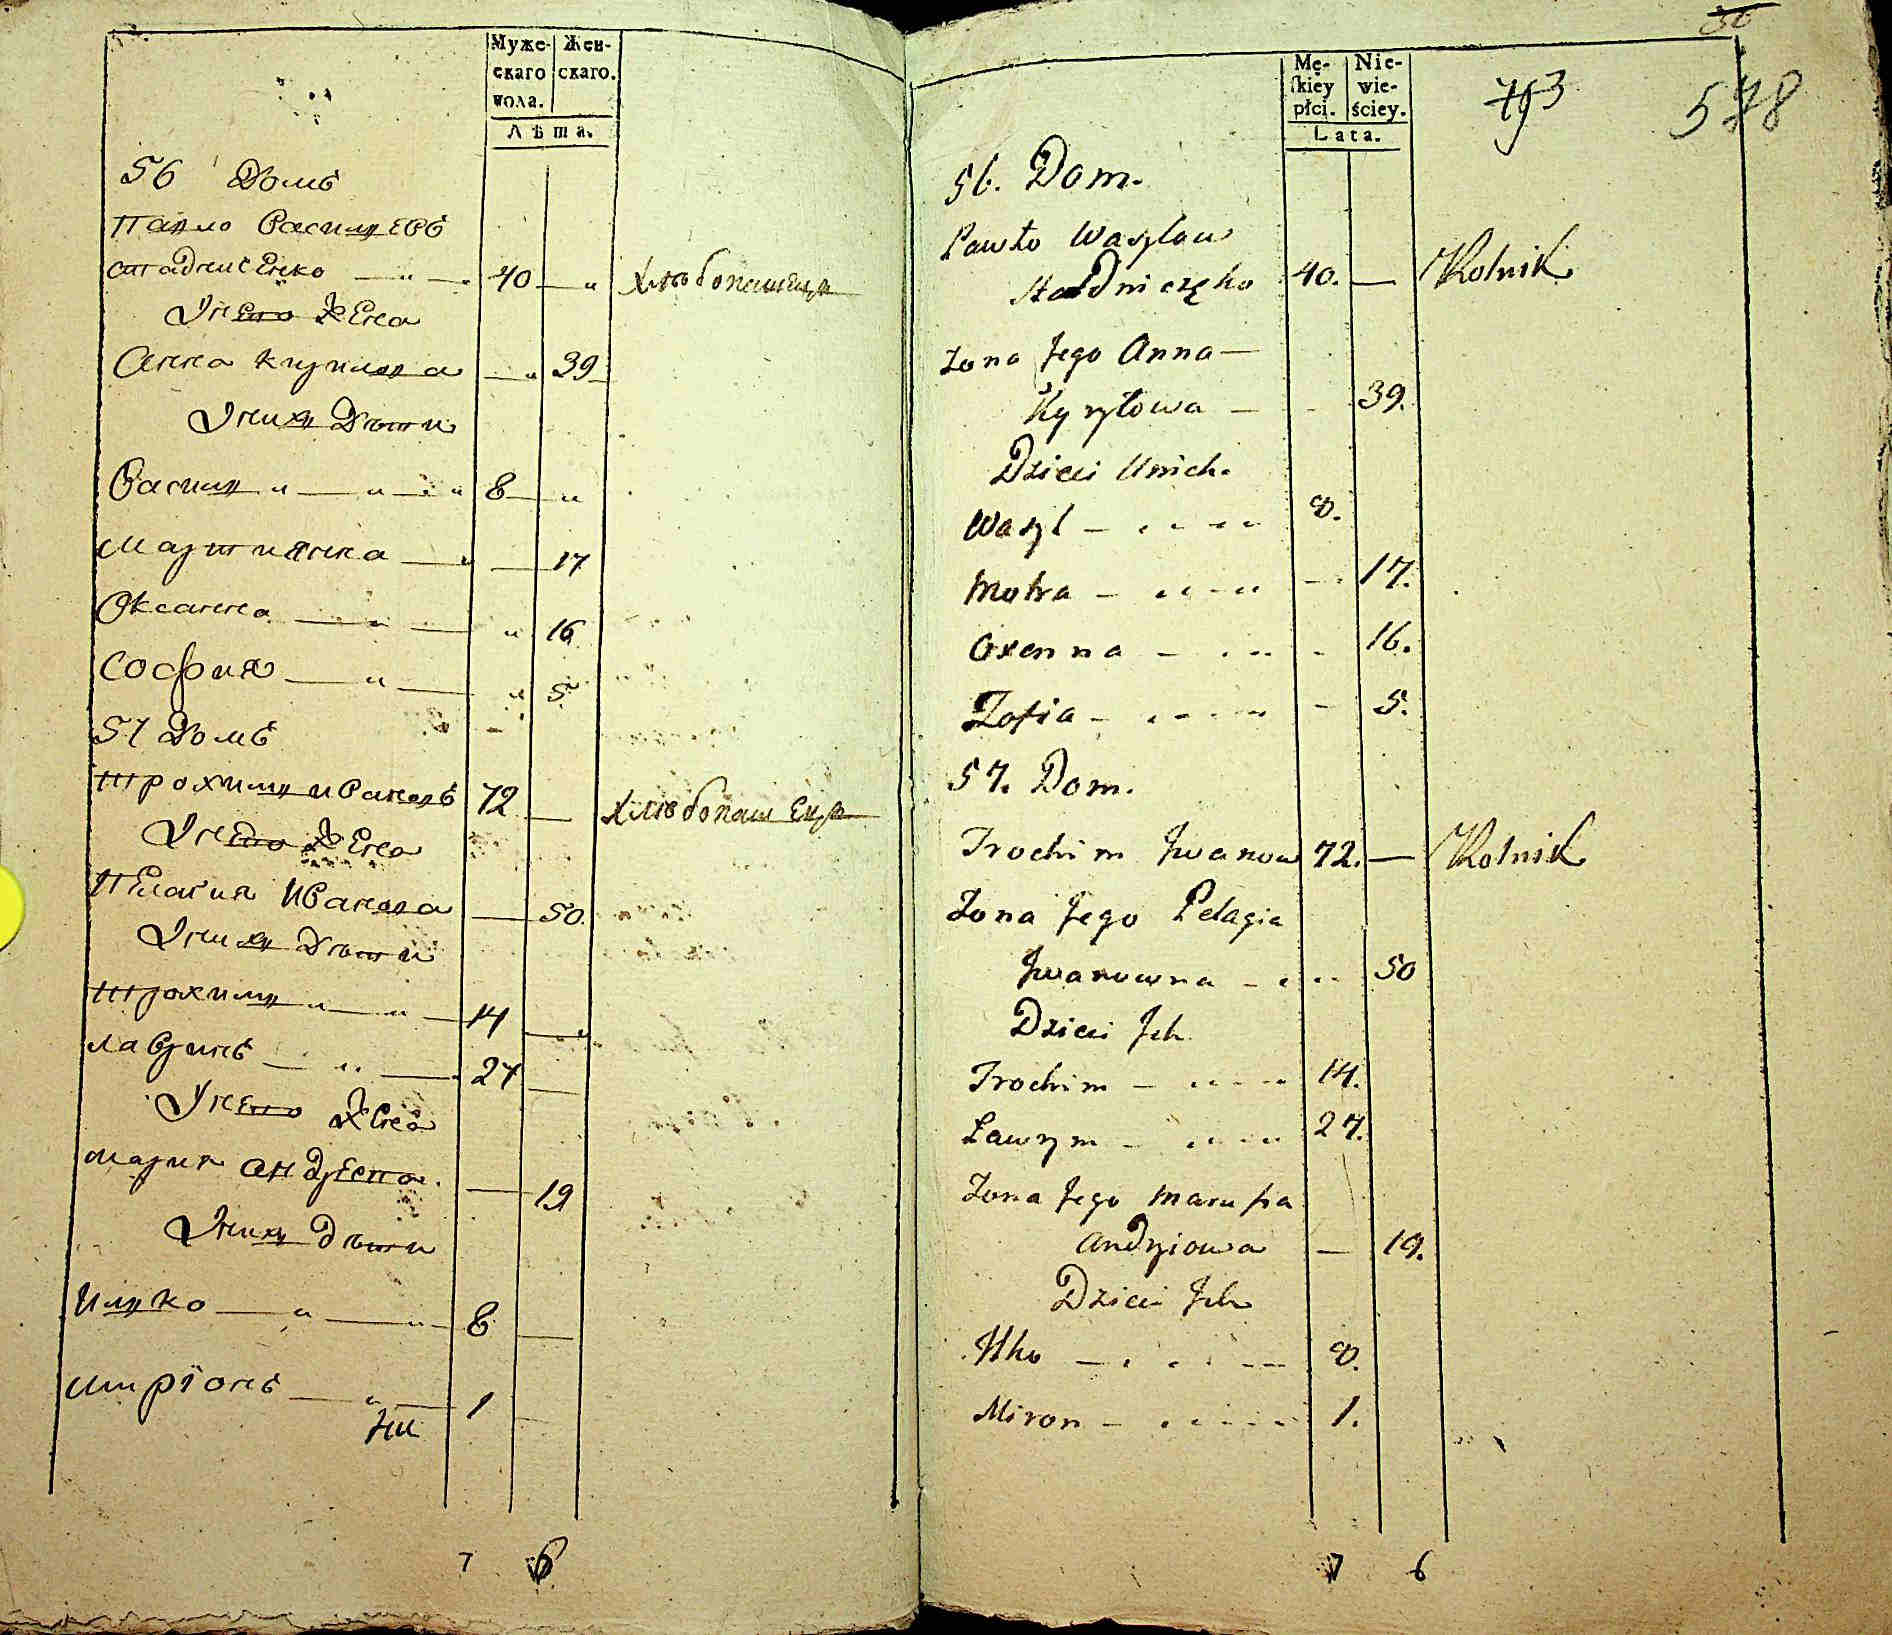 Муже-
скаго
пола.
Жен-
скаго.
Лѣта.
56 Домъ
Павло Василевъ
Стадниченко 40 хлѣбопашецъ
У него жена
Анна Кирилова 39
У нихъ Дѣти
Василь 8
Мартиянна 17
Оксанна 16
София 5
57 Домъ
Трохимъ Ивановъ 72 хлѣбопашецъ
У него жена
Пелагия Иванова 50
У нихъ Дѣти
Трохимъ 14
Лавринъ 27
У него Жена
Мария Андреева 19
У нихъ Дѣти
Илько 8
Миронъ 1
7 6
Mę-
skiey
płci.
Nie-
wie-
ściey.
Lata.
753
578
56. Dom.
Pawło Wasylow
Stadniczęko 40. — Rolnik
Zona Jego Anna —
Kyryłowa — 39.
Dzieci Unich.
Wasyl — 8.
Motra — 17.
Oxenna — 16.
Zofia — 5.
57. Dom.
Trochim Jwanow 72. — Rolnik
Zona Jego Pelagia
Jwanowna — 50
Dzieci Jch
Trochim — 14.
Ławrym — 27.
Zona Jego Marusia
Andryiowa — 19.
Dzieci Jch
Ilko — 8.
Miron — 1.
7 6